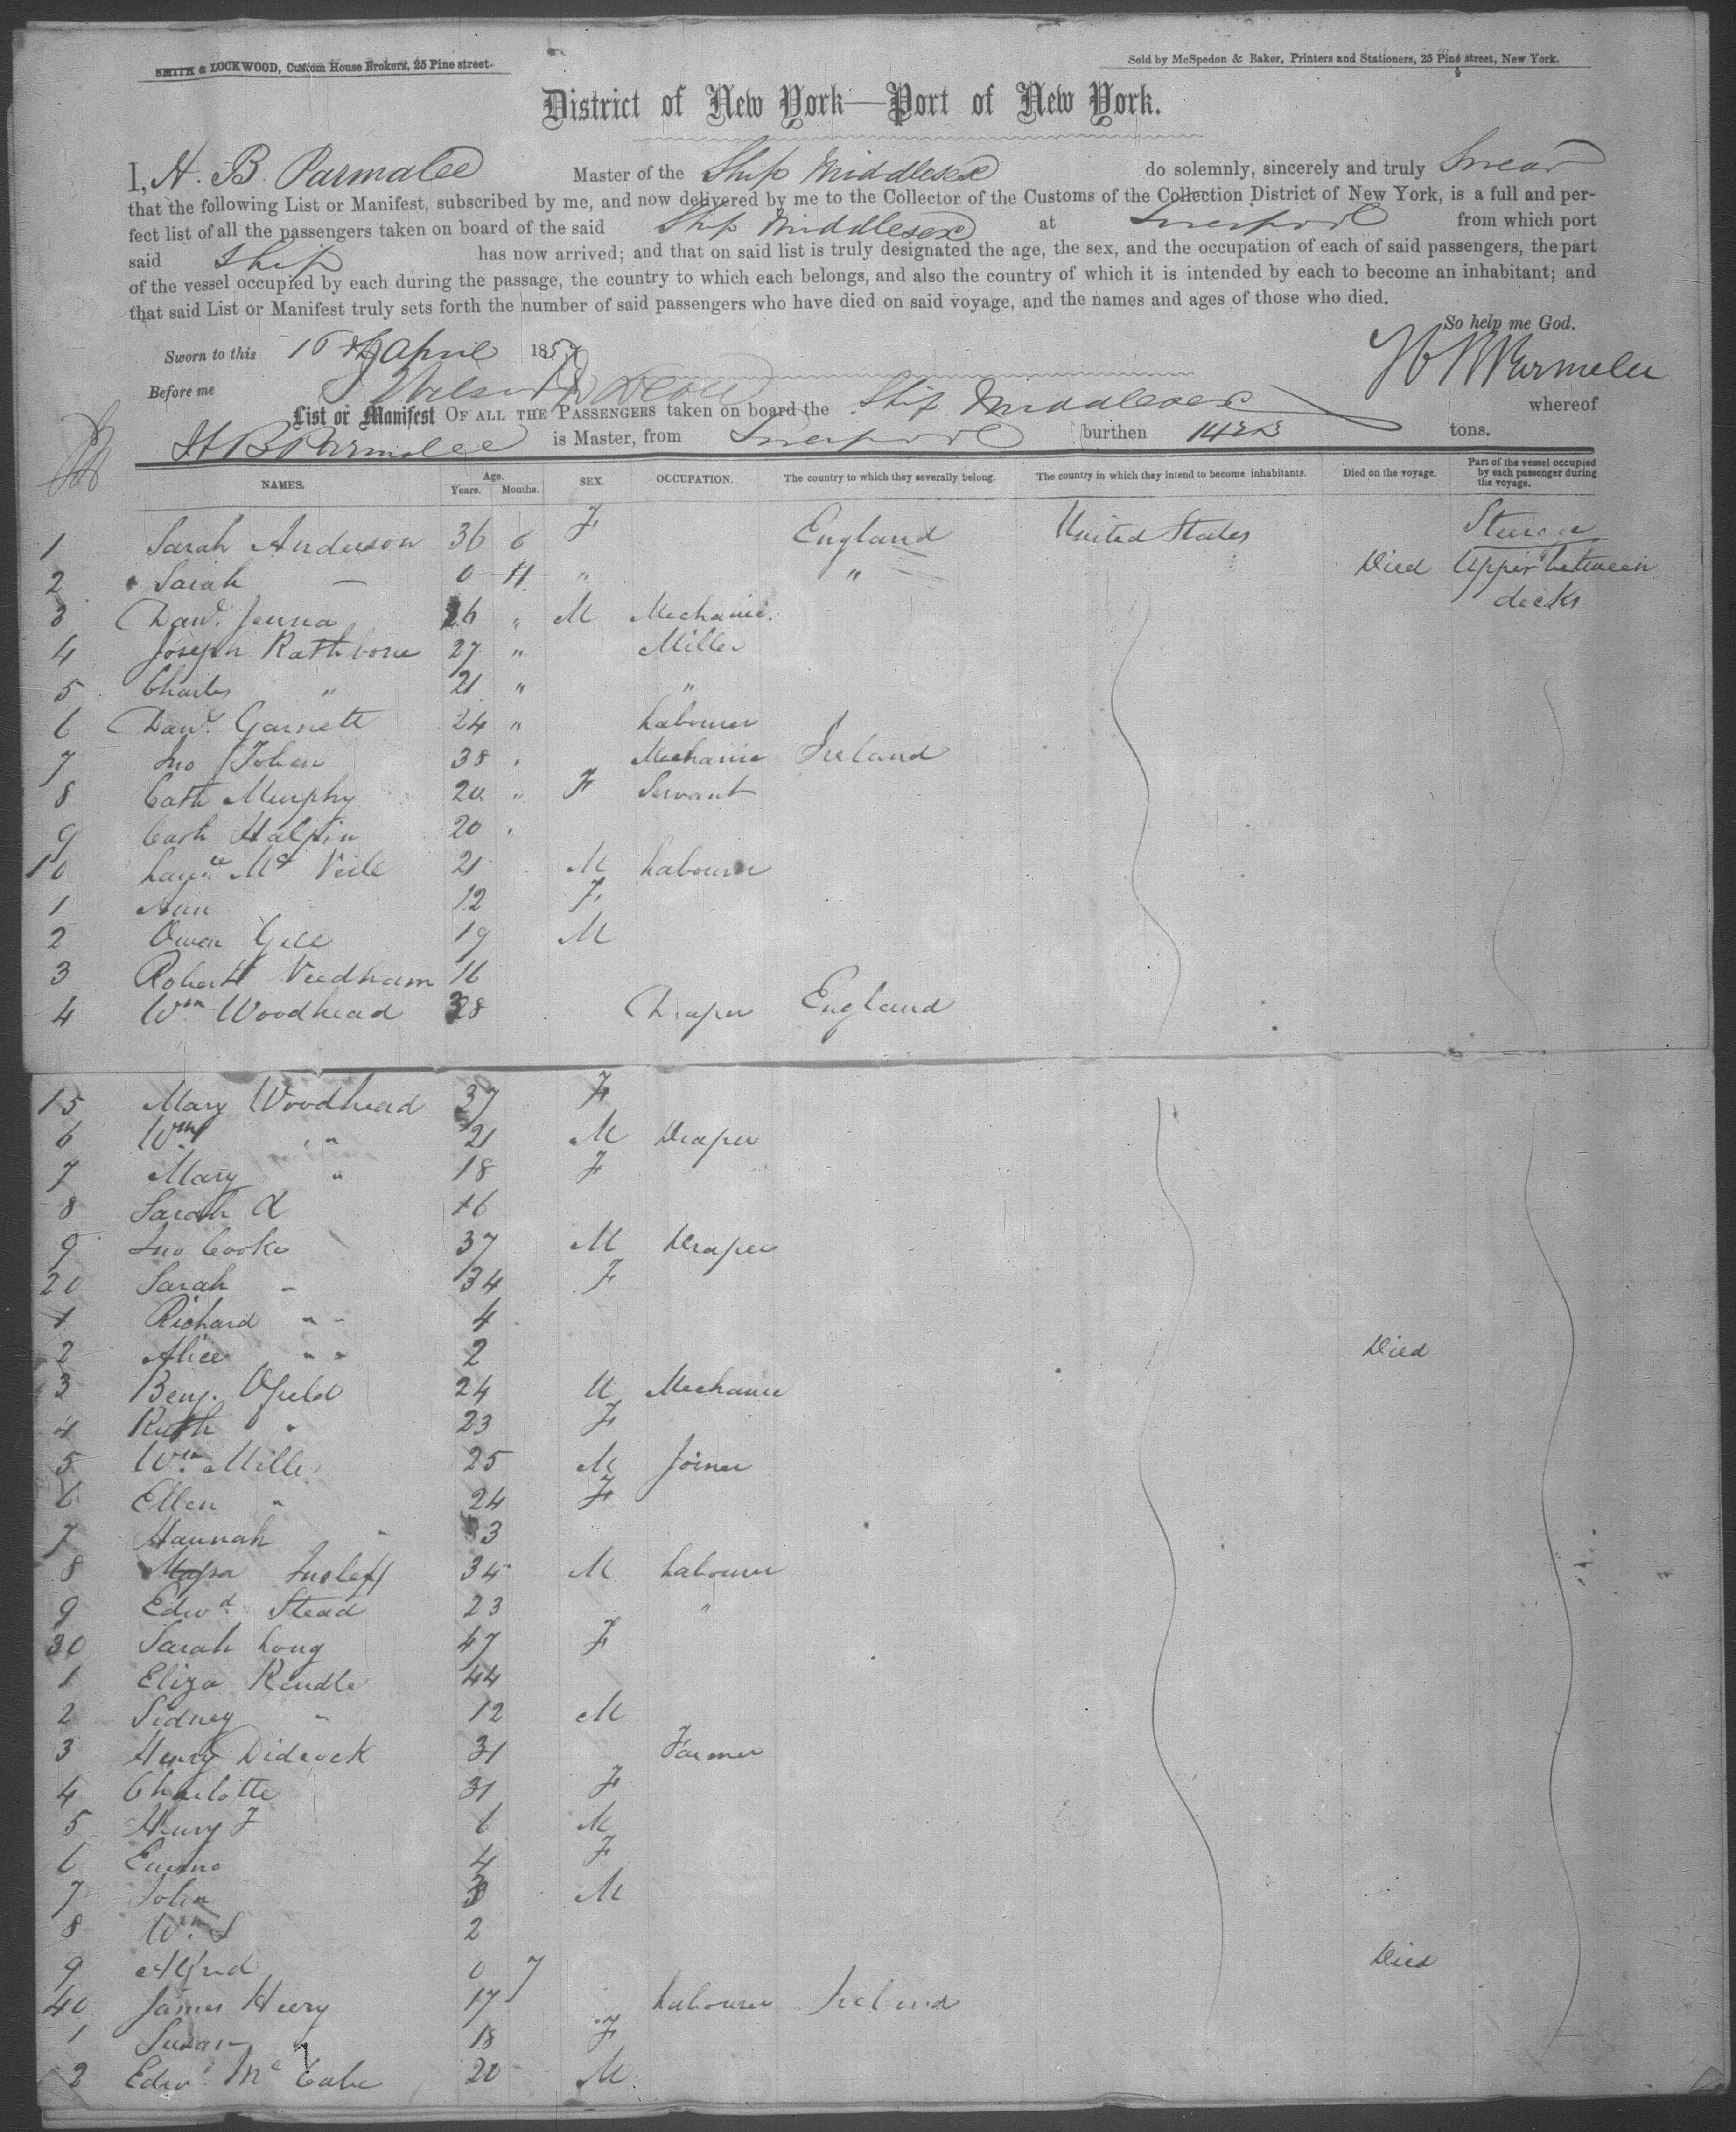 SMITH & LOCKWOOD, Custom House Brokers, 25 Pine street.
Sold by McSpedon & Baker, Printers and Stationers, 25 Pine street, New York.
District of New York—Port of New York.
I, H. B. Parmalee Master of the Ship Middlesex do solemnly, sincerely and truly Swear
that the following List or Manifest, subscribed by me, and now delivered by me to the Collector of the Customs of the Collection District of New York, is a full and per-
fect list of all the passengers taken on board of the said Ship Middlesex at Liverpool from which port
said Ship has now arrived; and that on said list is truly designated the age, the sex, and the occupation of each of said passengers, the part
of the vessel occupied by each during the passage, the country to which each belongs, and also the country of which it is intended by each to become an inhabitant; and
that said List or Manifest truly sets forth the number of said passengers who have died on said voyage, and the names and ages of those who died.
So help me God.
Sworn to this 16th April 1857
H B Parmelee
Before me
List or Manifest OF ALL THE PASSENGERS taken on board the Ship Middlesex whereof
H B Parmalee is Master, from Liverpool burthen 1422 tons.
NAMES. Age. Years. Months. SEX. OCCUPATION. The country to which they severally belong. The country in which they intend to become inhabitants. Died on the voyage. Part of the vessel occupied by each passenger during the voyage.
1 Sarah Anderson 36 6 F England United States Steerage
2 Sarah — 0 11 " " Died Upper between
decks
3 Danl. Jenna 26 " M Mechanic.
4 Joseph Rathbone 27 " Miller
5 Charles " 21 " "
6 Danl. Garnett 24 " Labourer
7 Jno Tobin 38 " Mechanic Ireland
8 Cath Murphy 20 " F Servant
9 Cath Halpin 20 "
10 Mc Veile 21 M Labourer
1 Ann 12 F
2 Owen Gill 19 M
3 Robert Needham 16
4 Wm Woodhead 38 Draper England
15 Mary Woodhead 37 F
6 Wm " 21 M Draper
7 Mary " 18 F
8 Sarah A 16
9 Jno Cooke 37 M Draper
20 Sarah " 34 F
1 Richard " 4
2 Alice " " 2 Died
3 Benj. Ofield 24 M Mechanic
4 Ruth " 23 F
5 Wm. Mills 25 M Joiner
6 Ellen " 24 F
7 Hannah " 3
8 34 M Labourer
9 Edwd Stead 23 "
30 Sarah Long 47 F
1 Eliza Rendle 44
2 Sidney " 12 M
3 Henry Didcock 31 Farmer
4 Charlotte 31 F
5 Henry F 6 M
6 Emma 4 F
7 John 3 M
8 Wm. S 2
9 Alfred 0 7 Died
40 James Heery 17 Labourer Ireland
1 Susan " 18 F
2 Edwd. Mc Cabe 20 M